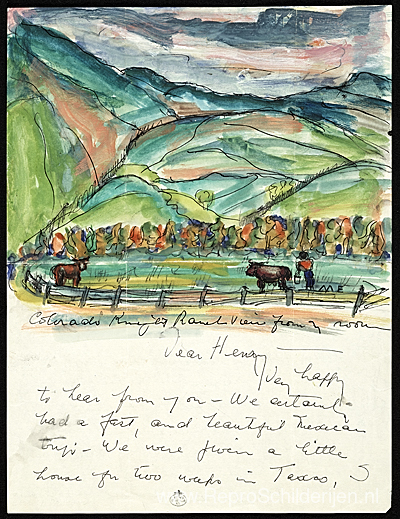 ME
Colorado Ranch View from my room
Dear Henry —
Very happy
to hear from you — We certainly
had a fast, and beautiful Mexican
trip — We were given a little
house for two weeks in Taxco, S
www.ReproSchilderijen.nl